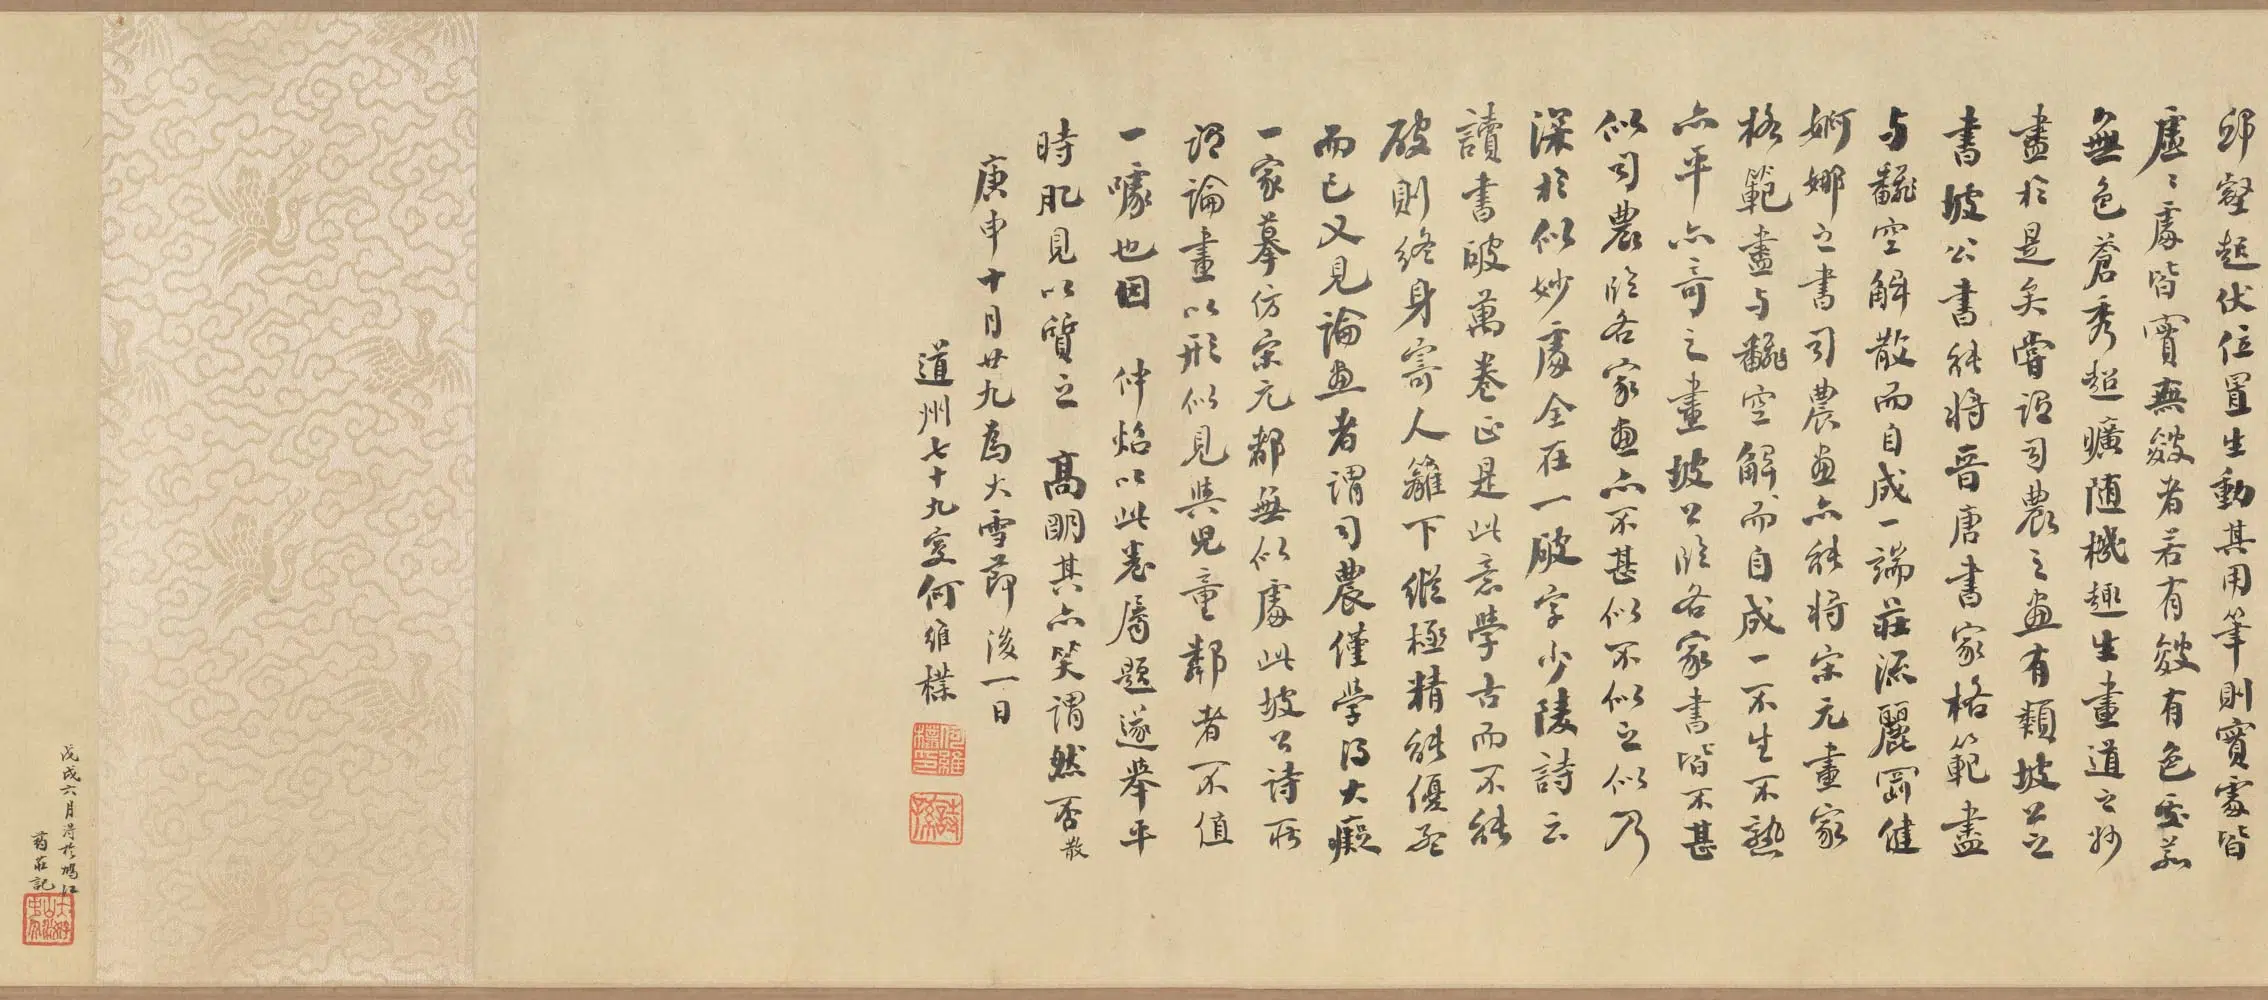 邱壑起伏位置生動其用筆則實處皆
虛虛處皆實無皴者若有皴有色者若
無色蒼秀超曠隨機趣生畫道之妙
盡於是矣嘗謂司農之畫有類坡公之
書坡公書能將晉唐書家格範盡
与翻空解散而自成一端莊流麗剛健
婀娜之書司農畫亦能將宋元畫家
格範盡与翻空解而自成一不生不熟
亦平亦奇之畫坡公臨各家書皆不甚
似司農臨各家畫亦不甚似不似之似乃
深於似妙處全在一破字少陵詩云
讀書破萬卷正是此意學古而不能
破則終身寄人籬下縱極精能優孟
而已又見論畫者謂司農僅學得大癡
一家摹仿宋元都無似處此坡公詩所
謂論畫以形似見與兒童鄰者不值
一噱也因 仲炤以此卷屬題遂舉平
時肊見以質之 高明其亦笑謂然否 散
庚申十月廿九為大雪節後一日
道州七十九叟何維樸
何維樸印
詩孫
戊戌六月得於鳩江
藥莊記